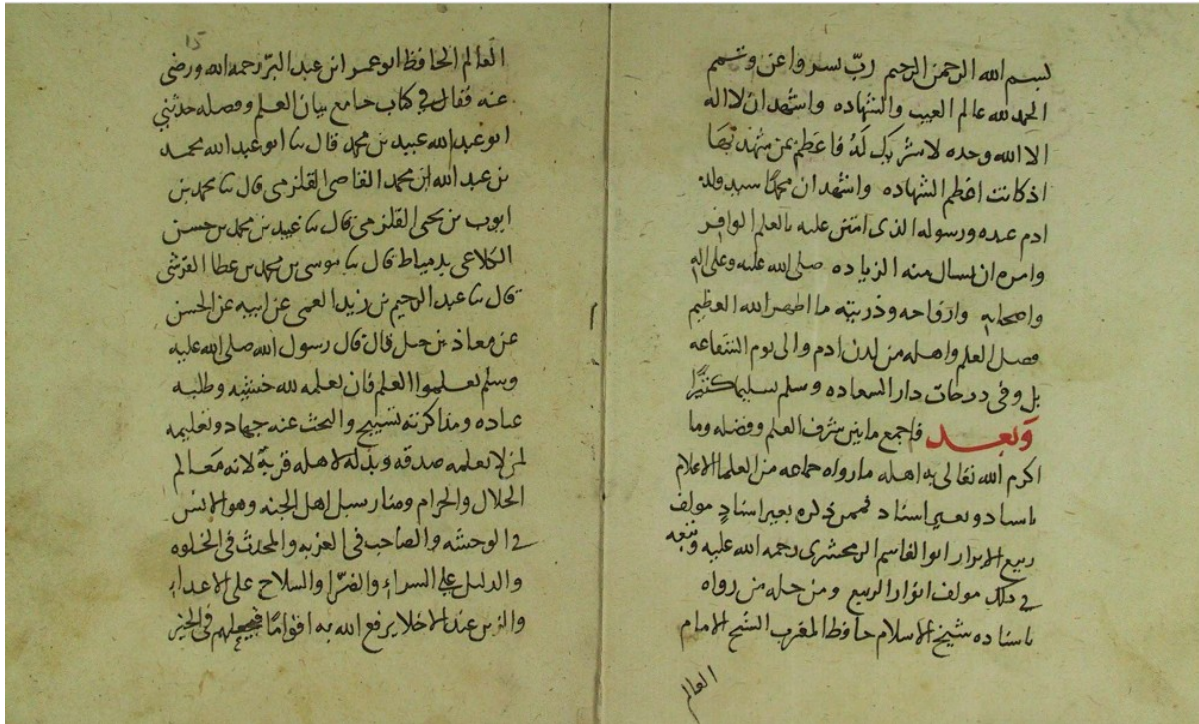 بسم الله الرحمن الرحيم رب يسر واعن وتمم
الحمد لله عالم الغيب والشهاده واشهد ان لا اله
الا الله وحده لا شريك له فاعظم بمن شهد بها
اذ كانت اعظم الشهاده واشهد ان محمدًا سيد ولد
ادم عبده ورسوله الذى امتن عليه بالعلم الوافر
وامره ان يسال منه الزياده صلى الله عليه وعلى اله
واصحابه وازواجه وذريته ما اظهر الله العظيم
فضل العلم واهله من لدن ادم والى يوم الشفاعه
بل وفى درجات دار السعاده وسلم تسليما كثيرًا
وَبعــد فاجمع ما بين شرف العلم وفضله وما
اكرم الله تعالى به اهله ما رواه جماعه من العلما الاعلام
باسناد وبغير اسناد فممن ذكره بغير اسنادٍ مولف
ربيع الابرار ابو القاسم الزمخشرى رحمه الله عليه وتبعه
فى ذلك مولف انوار الربيع ومن جمله من رواه
باسناده شيخ الاسلام حافظ المغرب الشيخ الامام
العالم
15
العالم الحافظ ابو عمر ابن عبد البرّ رحمه الله ورضى
عنه فقال فى كتاب جامع بيان العلم وفضله حدثني
ابو عبد الله عبيد بن محمد قال نا ابو عبد الله محمد
بن عبد الله ابن محمد القاضى القلزمى قال نا محمد بن
ايوب بن يحيى القلزمى قال نا عبيد بن محمد بن حسن
الكلاعى بدمياط قال نا موسى بن محمد بن عطا القرشى
قال نا عبد الرحيم بن زيد العمى عن ابيه عن الحسن
عن معاذ بن جبل قال قال رسول الله صلى الله عليه
وسلم تعلموا العلم فان تعلمه لله خشيه وطلبه
عباده ومذاكرته تسبيح والبحث عنه جهاد وتعليمه
لمن لا يعلمه صدقه وبذله لاهله قربةٌ لانه مَعالم
الحلال والحرام ومنار سبل اهل الجنه وهو الانس
فى الوحشه والصاحب فى الغربه والمحدث فى الخلوه
والدليل على السراء والضّرا والسلاح على الاعداء
والزين عند الاخلا يرفع الله به اقوامًا فيجعلهم فى الخير